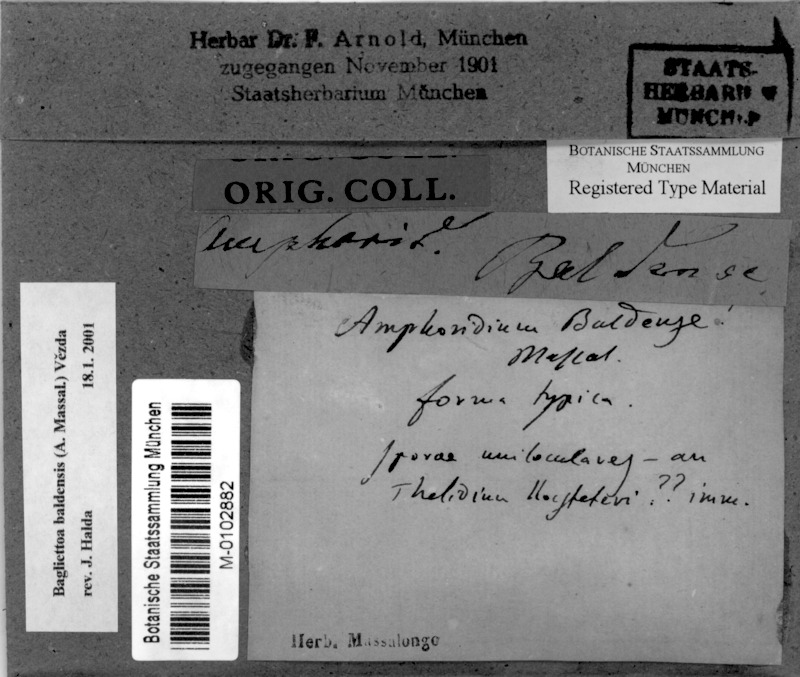 Herbar Dr. F. Arnold, München
zugegangen November 1901
Staatsherbarium München
STAATS-
HERBARIUM
MÜNCHEN
BOTANISCHE STAATSSAMMLUNG
MÜNCHEN
Registered Type Material
ORIG. COLL.
ORIG. COLL.
Amphorid. Baldense
Amphoridium Baldense!
Massal.
forma typica.
sporae uniloculares – an
Thelidium ?? imm.
Herb. Massalongo
Bagliettoa baldensis (A. Massal.) Vězda
rev. J. Halda 18.1. 2001
Botanische Staatssammlung München
M-0102882